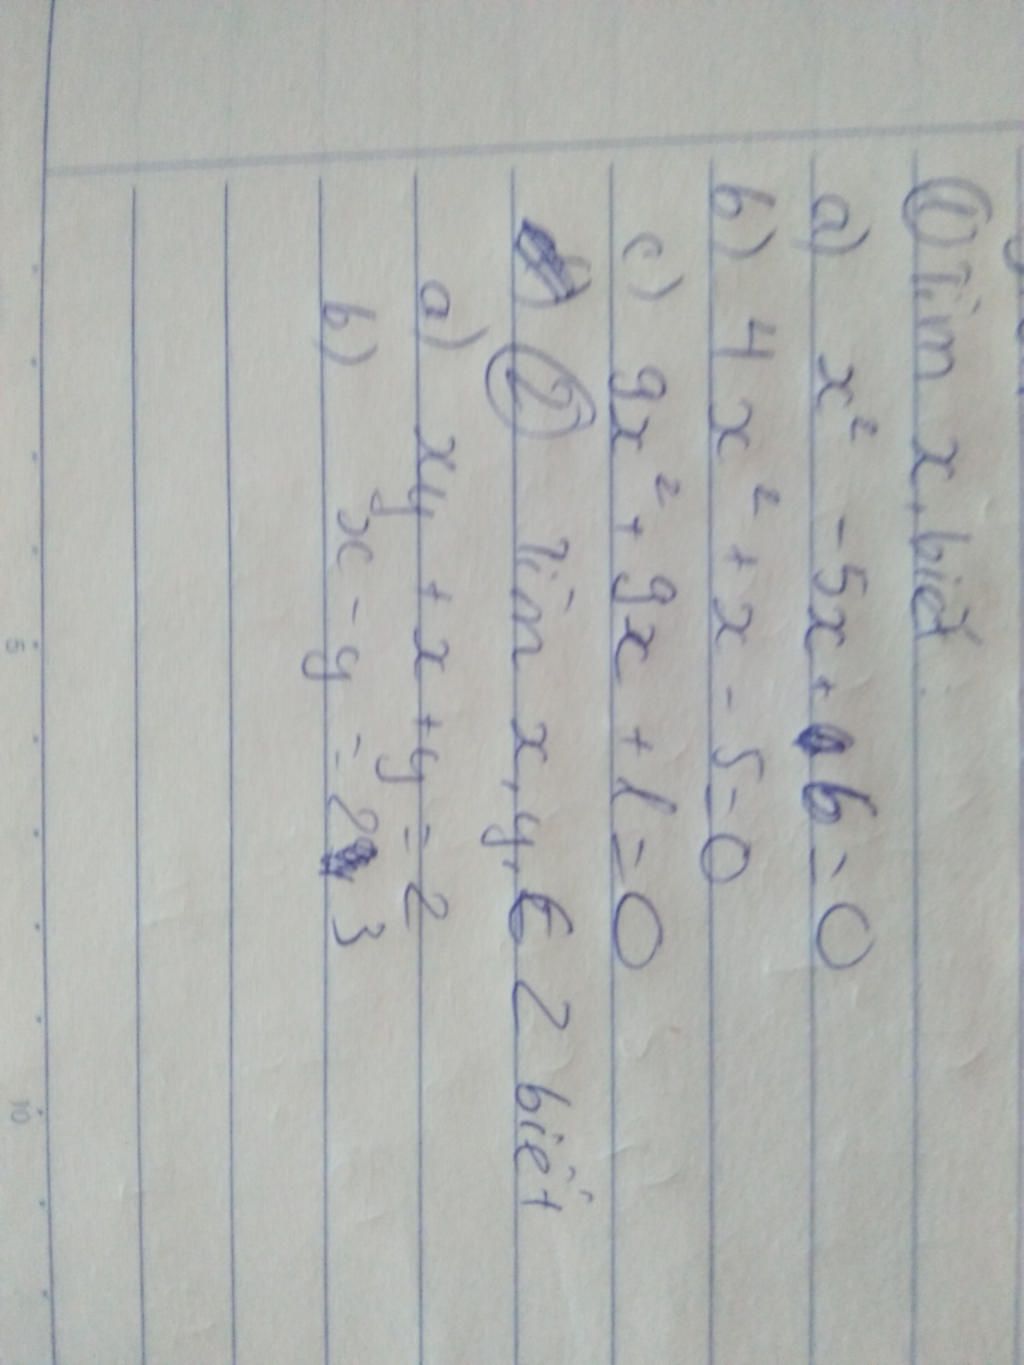 ① Tìm x, biết
a) x² - 5x + 6 = 0
b) 4x² + x - 5 = 0
c) 9x² + 9x + 1 = 0
② Tìm x, y, ∈ Z biết
a) xy + x + y = 2
b) x - y = 2 3
5 10